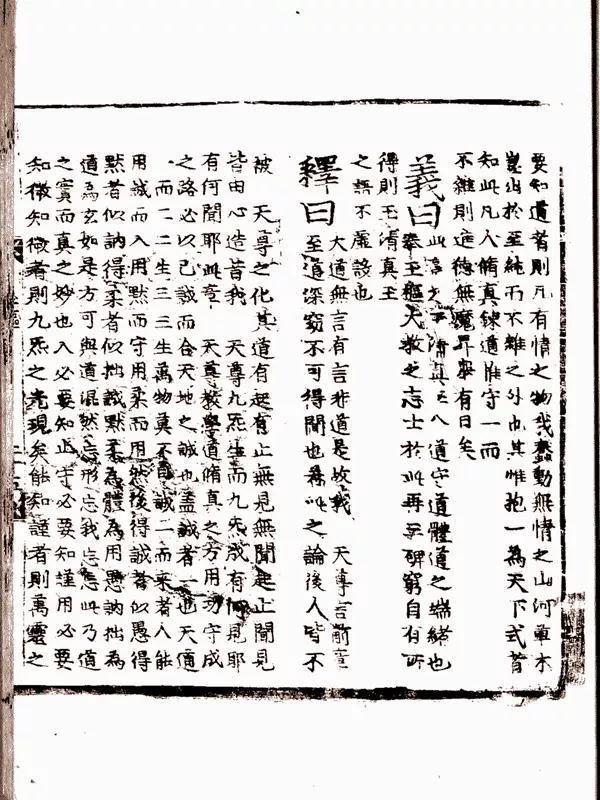 要知道者則凡有情之物我蠢動無情之山河草木
豈出於至純而不雜之外也其惟抱一為天下式苟
知此凡人脩真鍊道惟守一而
不雜則進德無魔昇舉有日矣
義曰
此言 真 入道守道體道之端緒也
奉玉樞天教之志士於此再至研窮自有所
得則玉清真王
之語不虛設也
釋曰
大道無言有言非道是故我 天尊言前章
至道深窈不可得聞也為此之論後人皆不
被 天尊之化其道有起有止無見無聞起止聞見
皆由心造昔我 天尊九炁生而九炁成有何見耶
有何聞耶此章 天尊教學道脩真之方用功守成
之路必以已誠而合天地之誠也蓋誠者一也天道
而一二生三三生萬物莫不皆誠二而來者入能
用誠而入用默而守用柔而用然後得誠者似愚得
默者似訥得柔者似拙誠默柔為體為用愚訥拙為
道為玄如是方可與道混然忘形忘我忘忘此乃道
之實而真之妙也入必要知止守必要知謹用必要
知微知微者則九炁之光現矣能知謹者則萬靈之